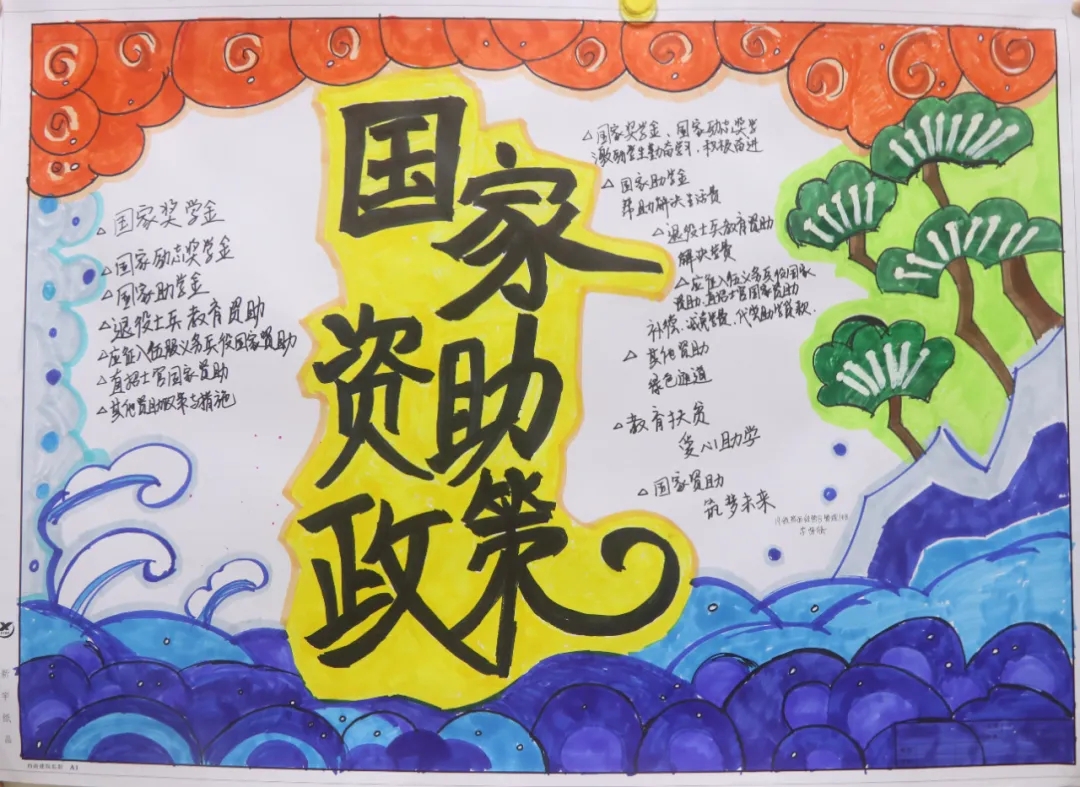 国家
资助
政策
△国家奖学金
△国家励志奖学金
△国家助学金
△退役士兵教育资助
△应征入伍服义务兵役国家资助
△直招士官国家资助
△其他资助政策与措施
△国家奖学金、国家励志奖学
激励学生勤奋学习、积极奋进
△国家助学金
帮助解决生活费
△退役士兵教育资助
解决学费
△应征入伍义务兵役国家
资助,直招士官国家资助
补偿、减免学费、代偿助学贷款.
△其他资助
绿色通道
△教育扶贫
爱心助学
△国家资助
筑梦未来
新宇纸品
A1